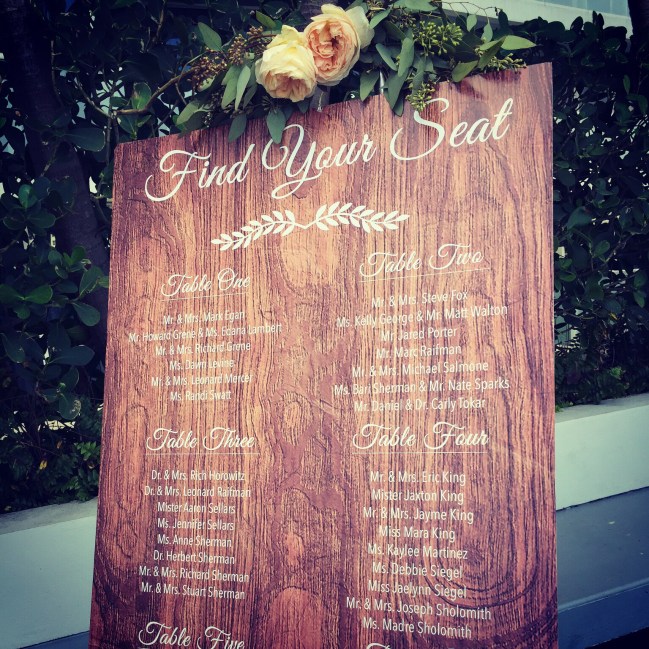 Find Your Seat
Table One
Mr. & Mrs. Mark Egart
Mr. Howard Grene & Ms. Edana Lambert
Mr. & Mrs. Richard Grene
Ms. Dawn Levine
Mr. & Mrs. Leonard Mercer
Ms. Randi Swatt
Table Two
Mr. & Mrs. Steve Fox
Ms. Kelly George & Mr. Matt Walton
Mr. Jared Porter
Mr. Marc Raifman
Mr. & Mrs. Michael Salmone
Ms. Bari Sherman & Mr. Nate Sparks
Mr. Daniel & Dr. Carly Tokar
Table Three
Dr. & Mrs. Rich Horowitz
Dr. & Mrs. Leonard Raifman
Mister Aaron Sellars
Ms. Jennifer Sellars
Ms. Anne Sherman
Dr. Herbert Sherman
Mr. & Mrs. Richard Sherman
Mr. & Mrs. Stuart Sherman
Table Four
Mr. & Mrs. Eric King
Mister Jaxton King
Mr. & Mrs. Jayme King
Miss Mara King
Ms. Kaylee Martinez
Ms. Debbie Siegel
Miss Jaelynn Siegel
Mr. & Mrs. Joseph Sholomith
Ms. Madre Sholomith
Table Five